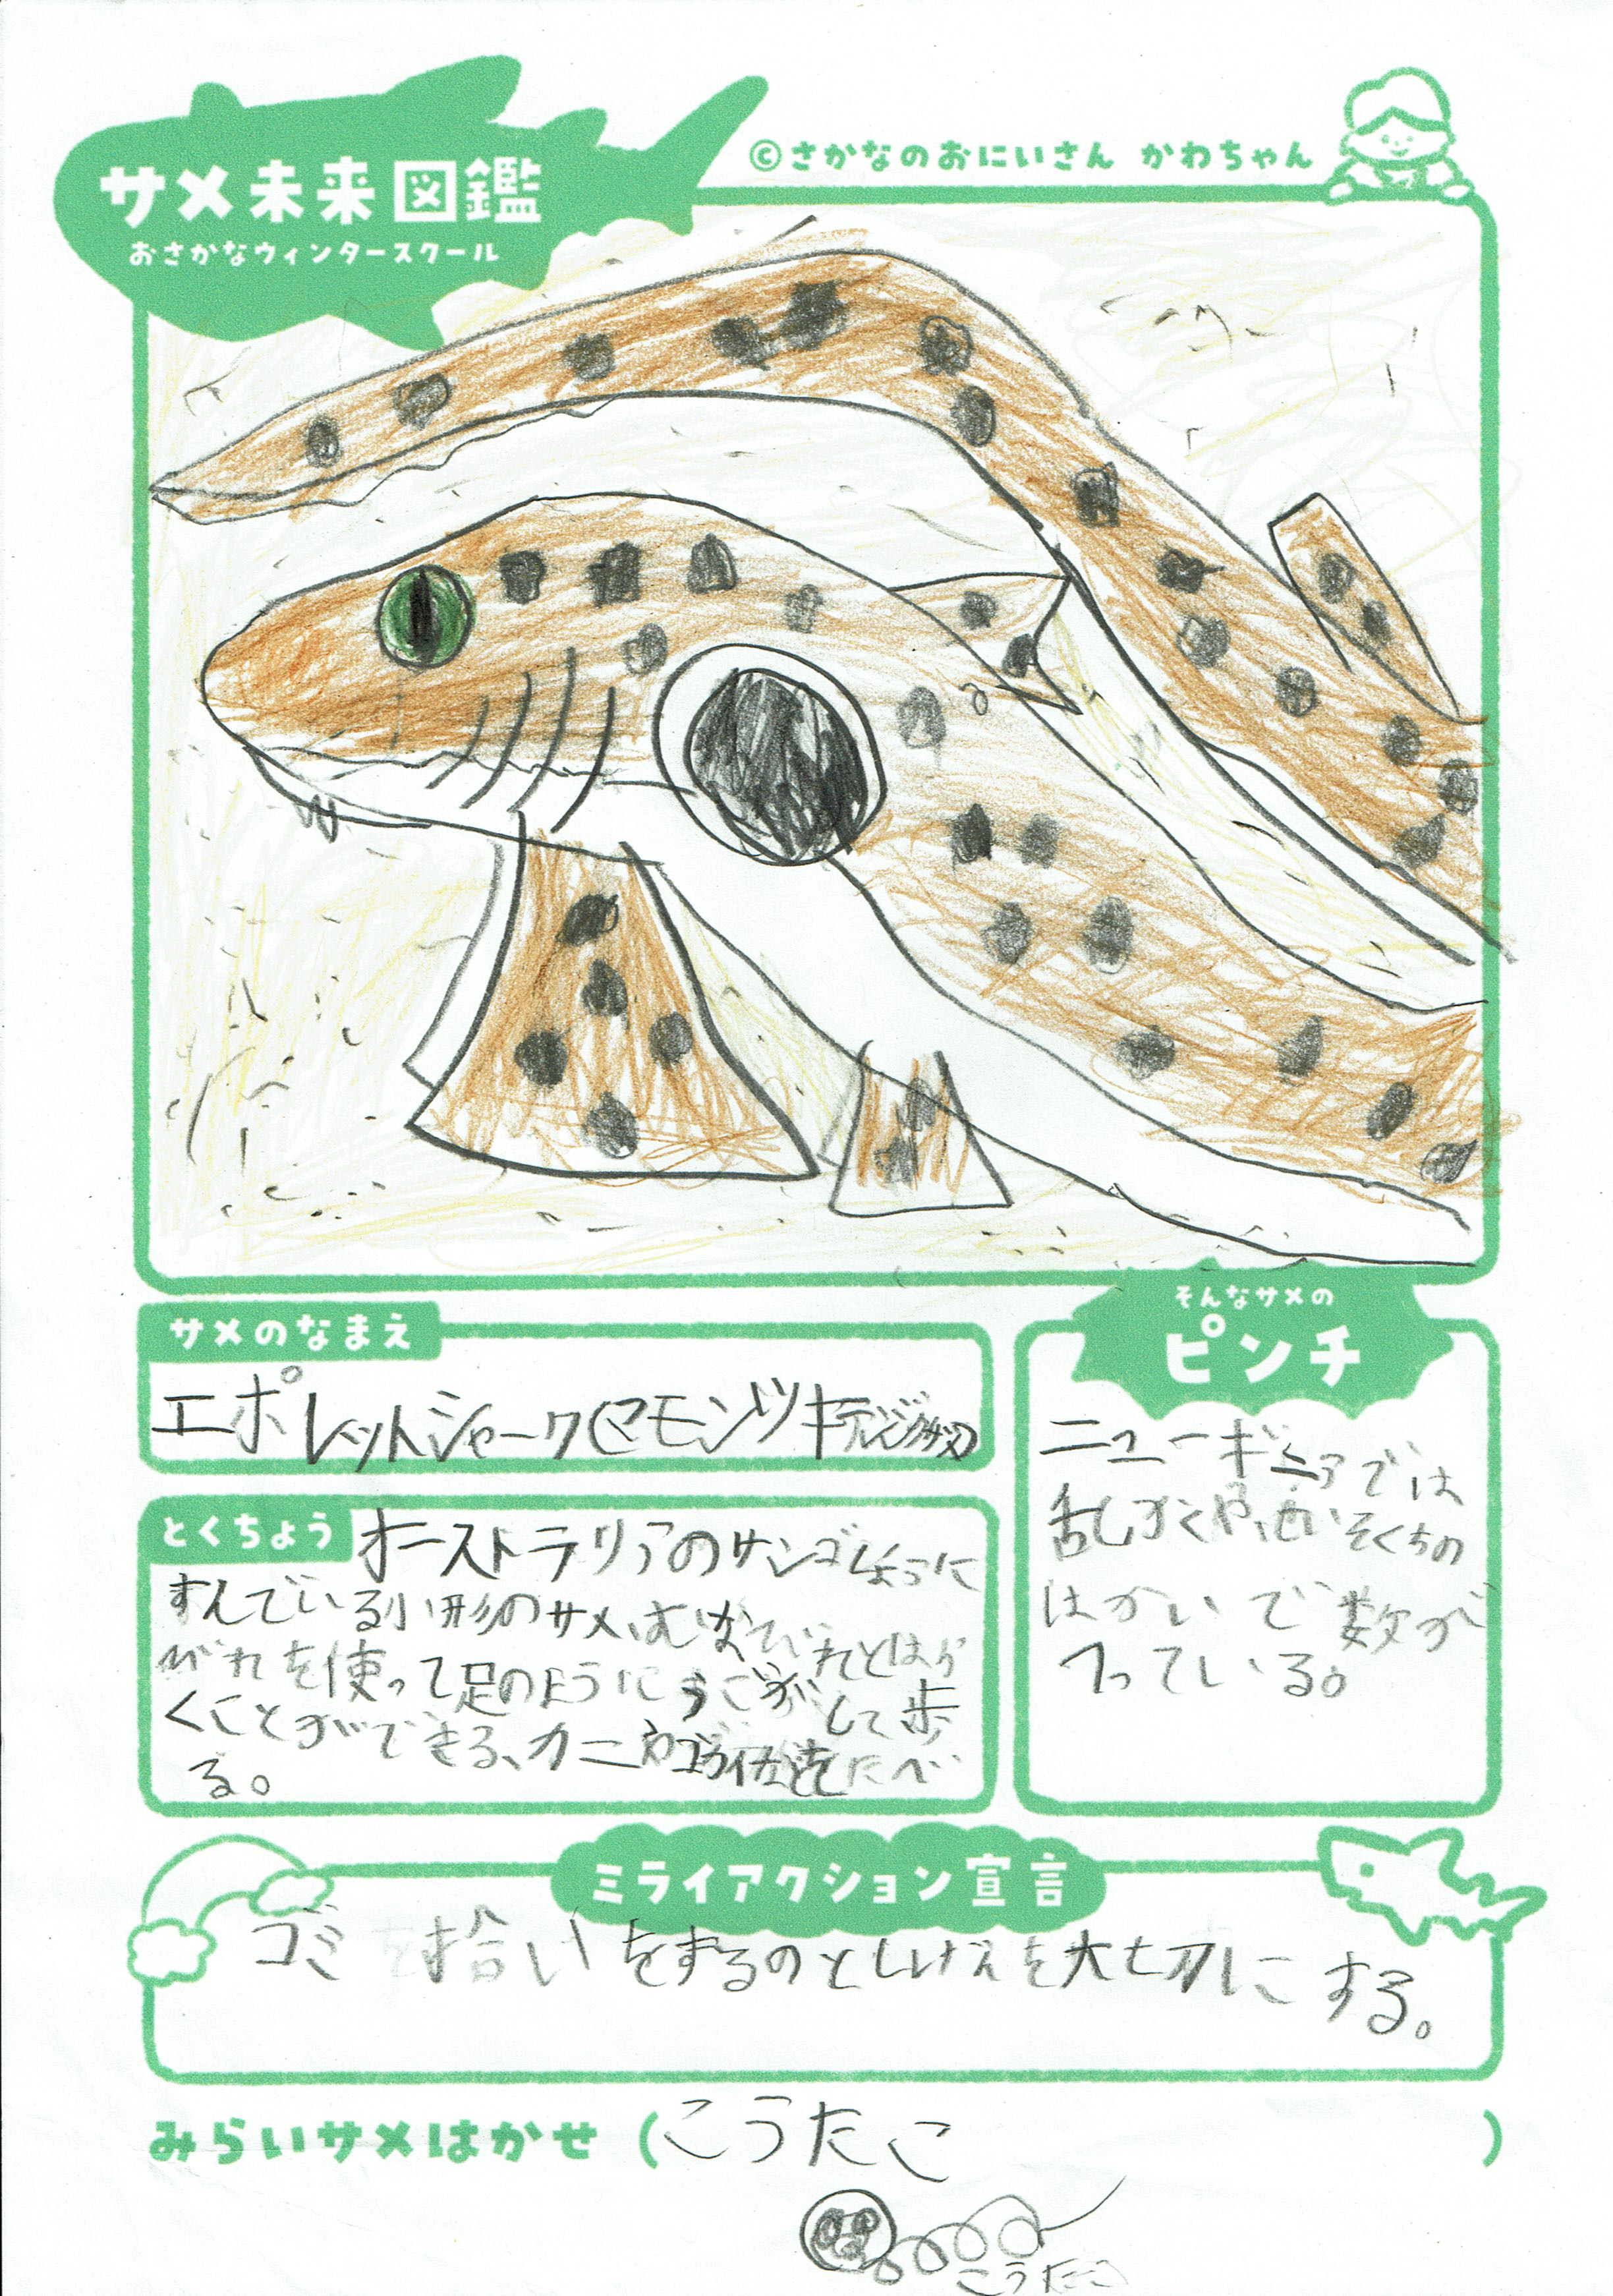 サメ未来図鑑
おさかなウィンタースクール
©さかなのおにいさん かわちゃん
サメのなまえ
エポレットシャーク(マモンツキテンジクザメ)
とくちょう
オーストラリアのサンゴしょうに
すんでいる小形のサメ、むなびれとはら
びれを使って足のようにうごかして歩
くことができる、カニやゴカイなどをたべ
る。
そんなサメの
ピンチ
ニューギニアでは
乱かくや、せいそくちの
はかいで数が
へっている。
ミライアクション宣言
ゴミ拾いをするのとしげんを大切にする。
みらいサメはかせ (こうたこ)
こうたこ